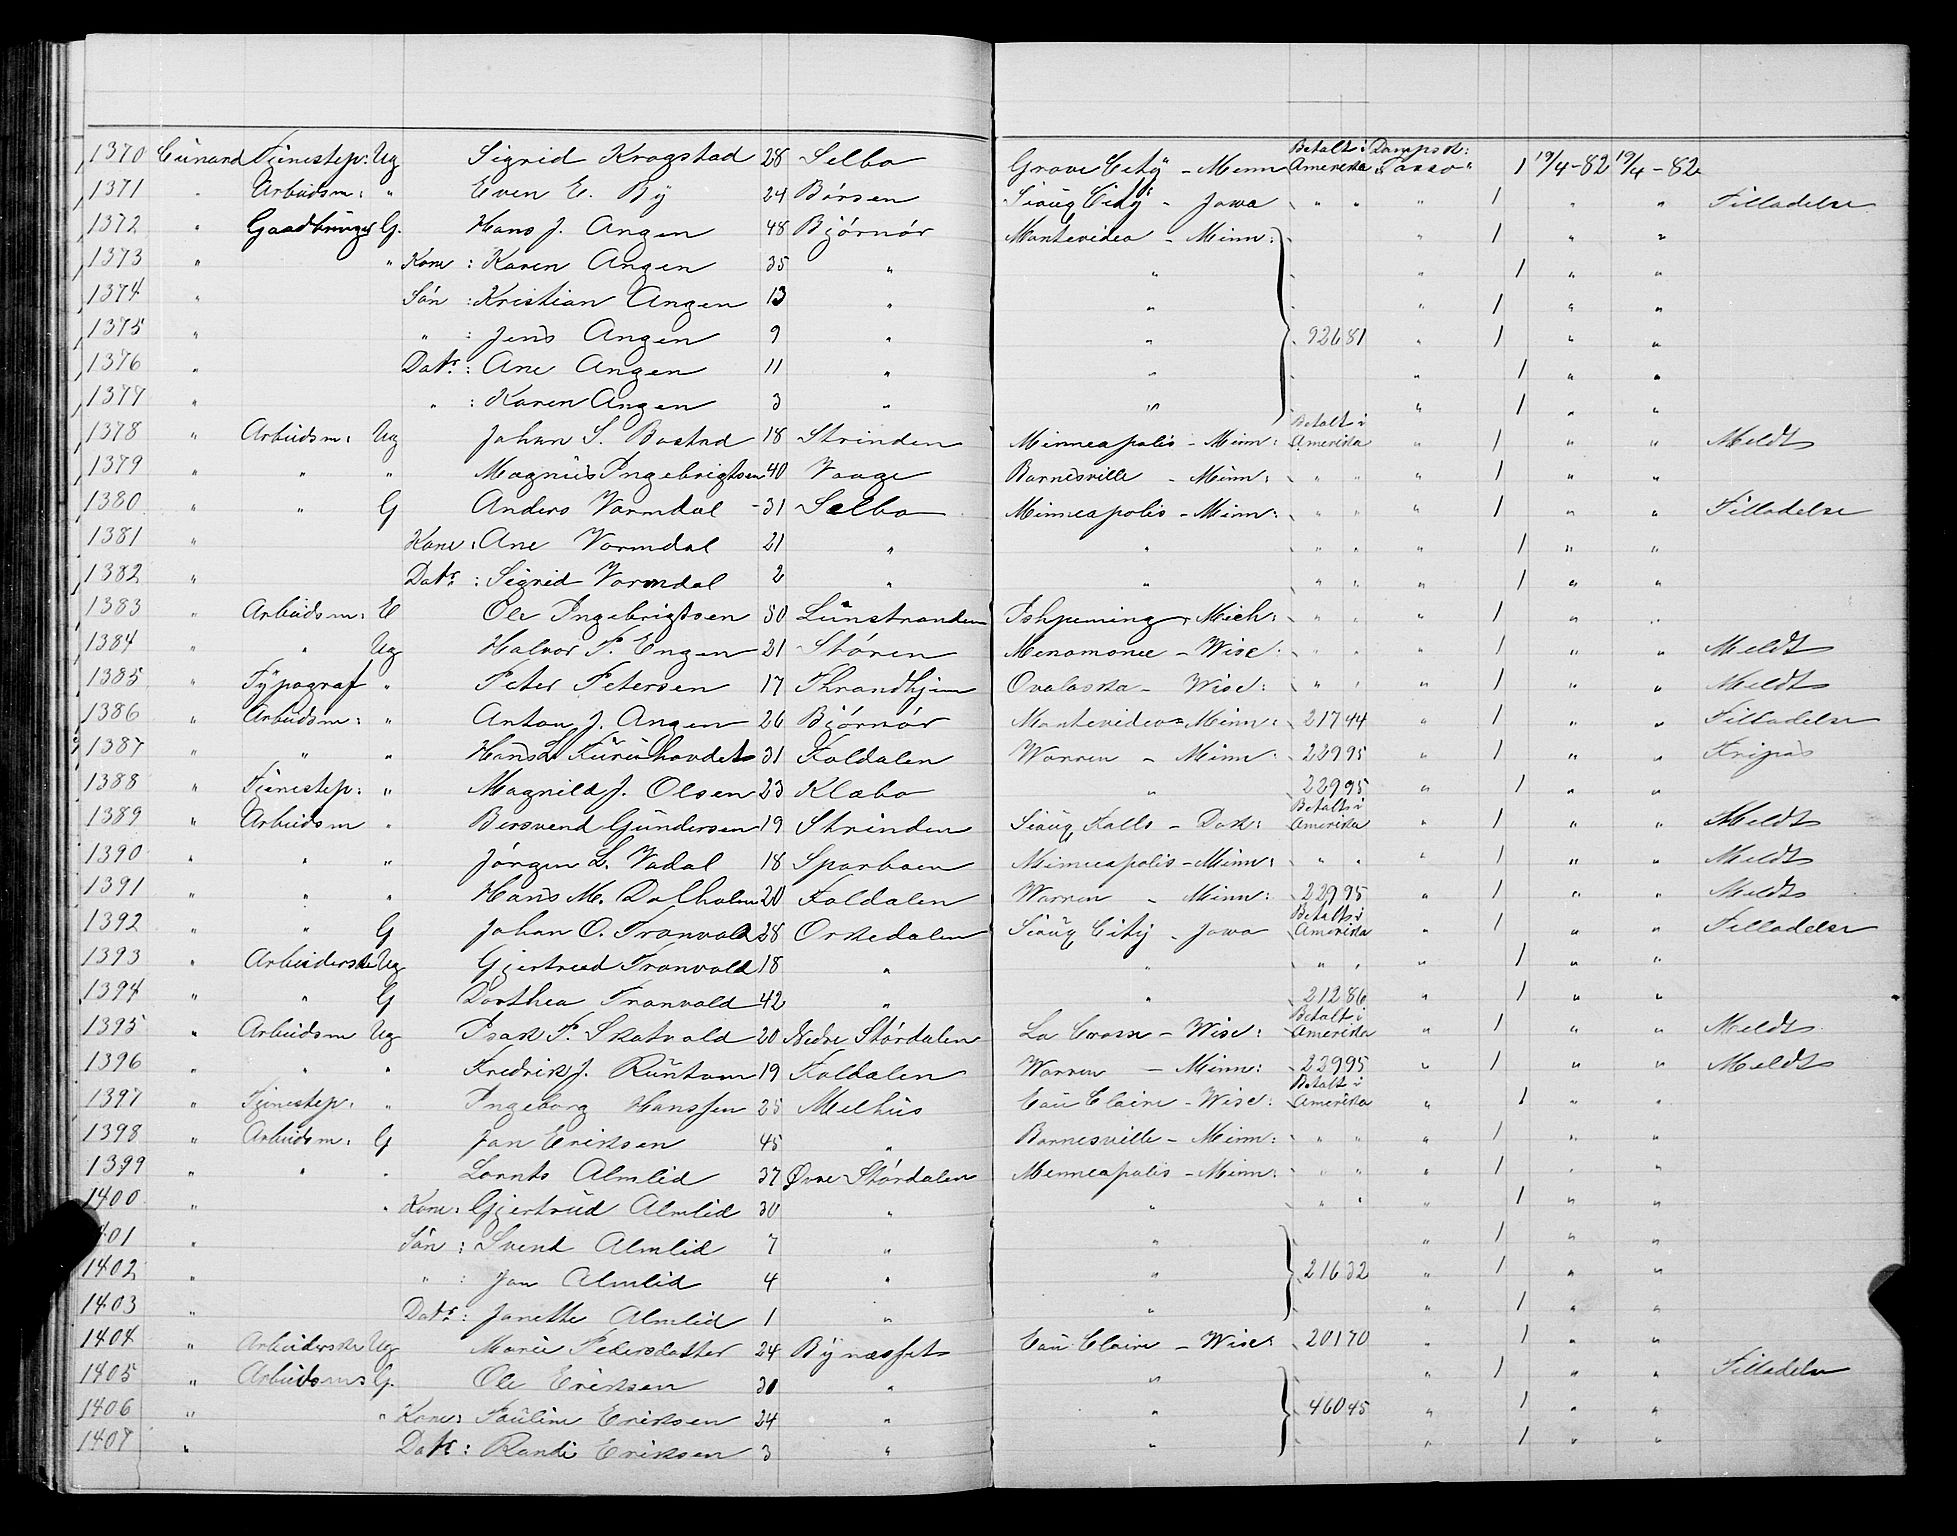 Betalt i Dampsk:
1370 Cunard Tjenestep: Ug Sigrid Kragstad 28 Selbo Grove City - Minn Amerika "Tasso" 1 19/4-82 19/4-82
1371 " Arbeidsm: " Even E. By 24 Børsen Sioux City - Jowa " " " 1 " " Tilladelse
1372 " Gaardbruger G. Hans J. Angen 48 Bjørnør Montevideo - Minn: " 1 " "
1373 " " Kone: Karen Angen 35 " " " 1 " "
1374 " Søn: Kristian Angen 13 " " " 1 " "
1375 " " : Jens Angen 9 " " 926 81 " 1 " "
1376 " Datr: Ane Angen 11 " " " 1 " "
1377 " " : Karen Angen 3 " " " 1 " "
1378 " Arbeidsm: Ug Johan S. Bostad 18 Strinden Minneapolis - Minn: Betalt i Amerika " 1 " " Meldt
1379 " " " Magnus Ingebrigtsen 40 Vaage Barnesville - Minn: " " " 1 " "
1380 " " G Anders Varmdal 31 Selbo Minneapolis - Minn: " " " 1 " " Tilladelse
1381 " Kone: Ane Varmdal 21 " " " " " 1 " "
1382 " Datr: Sigrid Varmdal 2 " " " " " 1 " "
1383 " Arbeidsm: E Ole Ingebrigtsen 50 Lünstranden Ishpeming, Mich: " " " 1 " "
1384 " " Ug Halvor P. Engen 21 Støren Menomonee - Wisc: " " " 1 " " Meldt
1385 " Typograf " Peter Petersen 17 Thrandhjem Onalaska - Wisc: " " " 1 " " Meldt
1386 " Arbeidsm: " Anton J. Angen 26 Bjørnør Montevideo - Minn: 217 44 " 1 " " Tilladelse
1387 " " " Hans L. Furuhovdet 31 Foldalen Warren - Minn: 229 95 " 1 " " Fripas
1388 " Tjenestep: " Magnild J. Olsen 23 Klæbo " 229 95 " 1 " "
1389 " Arbeidsm " Bersvend Gundersen 19 Strinden Sioux Falls - Dak: Betalt i Amerika " 1 " " Meldt
1390 " " " Jørgen L. Vadal 18 Sparboen Minneapolis - Minn: " " " 1 " " Meldt
1391 " " " Hans M. Dalholm 20 Foldalen Warren - Minn: 229 95 " 1 " " Meldt
1392 " " G Johan O. Tranvold 28 Orkedalen Sioux City - Jowa Betalt i Amerika " 1 " " Tilladelse
1393 " Arbeiderske Ug Gjertrud Tranvold 18 " " " " " 1 " "
1394 " " G Dorthea Tranvold 42 " " 212 86 " 1 " "
1395 " Arbeidsm Ug Isak P. Skatvold 20 Nedre Størdalen La Crosse - Wisc: Betalt i Amerika " 1 " " Meldt
1396 " " " Fredrik J. Runtom 19 Foldalen Warren - Minn: 229 95 " 1 " " Meldt
1397 " Tjenestep: " Ingeborg Hanssen 25 Melhus Eau Claire - Wisc: Betalt i Amerika " 1 " "
1398 " Arbeidsm: G Jon Eriksen 45 " Barnesville - Minn: " " " 1 " "
1399 " " " Lornts Almlid 37 Øvre Størdalen Minneapolis - Minn: " " " 1 " "
1400 " " Kone: Gjertrud Almlid 30 " " " " " 1 " "
1401 " Søn: Svend Almlid 7 " " " 1 " "
1402 " " : Jon Almlid 4 " " 216 32 " 1 " "
1403 " Datr: Janette Almlid 1 " " " 1 " "
1404 " Arbeiderske Ug Marie Pedersdatter 24 Bynæsset Eau Claire - Wisc: 201 70 " 1 " "
1405 " Arbeidsm: G. Ole Eriksen 31 " " " 1 " " Tilladelse
1406 " " Kone: Pauline Eriksen 24 " " 460 45 " 1 " "
1407 " Datr: Randi Eriksen 3 " " " 1 " "